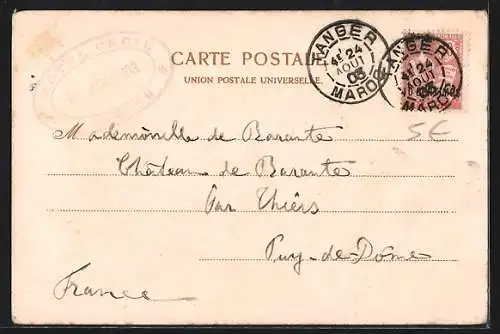 CARTE POSTALE
UNION POSTALE UNIVERSELLE
TANGER
4E 24
AOUT
03
MAROC
TANGER
4E 24
AOUT
03
MAROC
CECIL
5€
Mademoiselle de Barante
Château de Barante
par Thiers
Puy-de-Dome
France